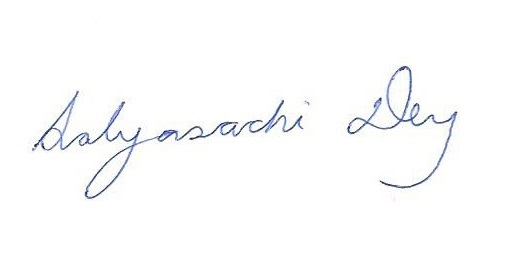 Salyasachi Dey